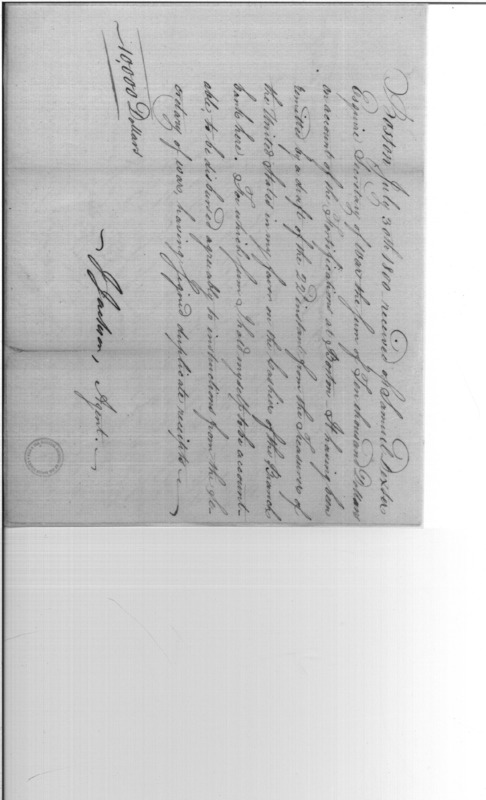 Boston July 30th 1800 received of Samuel Dexter
Esquire Secretary of War the sum of Ten thousand Dollars
on account of the Fortifications at Boston. It having been
remitted by a draft of the 22d instant from the Treasurer of
the United States in my favor on the Cashier of the Branch
bank here. For which sum I hold myself to be account-
able, to be disbursed agreeably to instructions from the Se-
cretary of war, having signed duplicate receipts
J Jackson, Agent.
10,000 Dollars